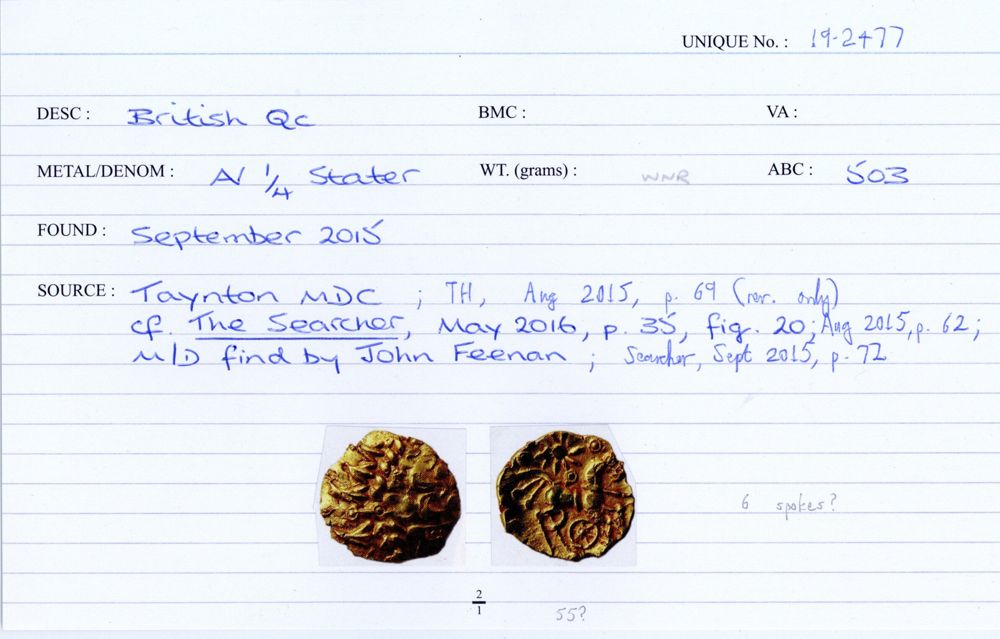 UNIQUE No. : 19-2477
DESC : British Qc BMC : VA :
METAL/DENOM : AV 1/4 Stater WT. (grams) : WNR ABC : 503
FOUND : September 2015
SOURCE : Taynton MDC ; TH, Aug 2015, p. 69 (rev. only)
cf. The Searcher, May 2016, p. 35, fig. 20; Aug 2015, p. 62;
M/D find by John Feenan ; Searcher, Sept 2015, p. 72
6 spokes?
2/1
55?